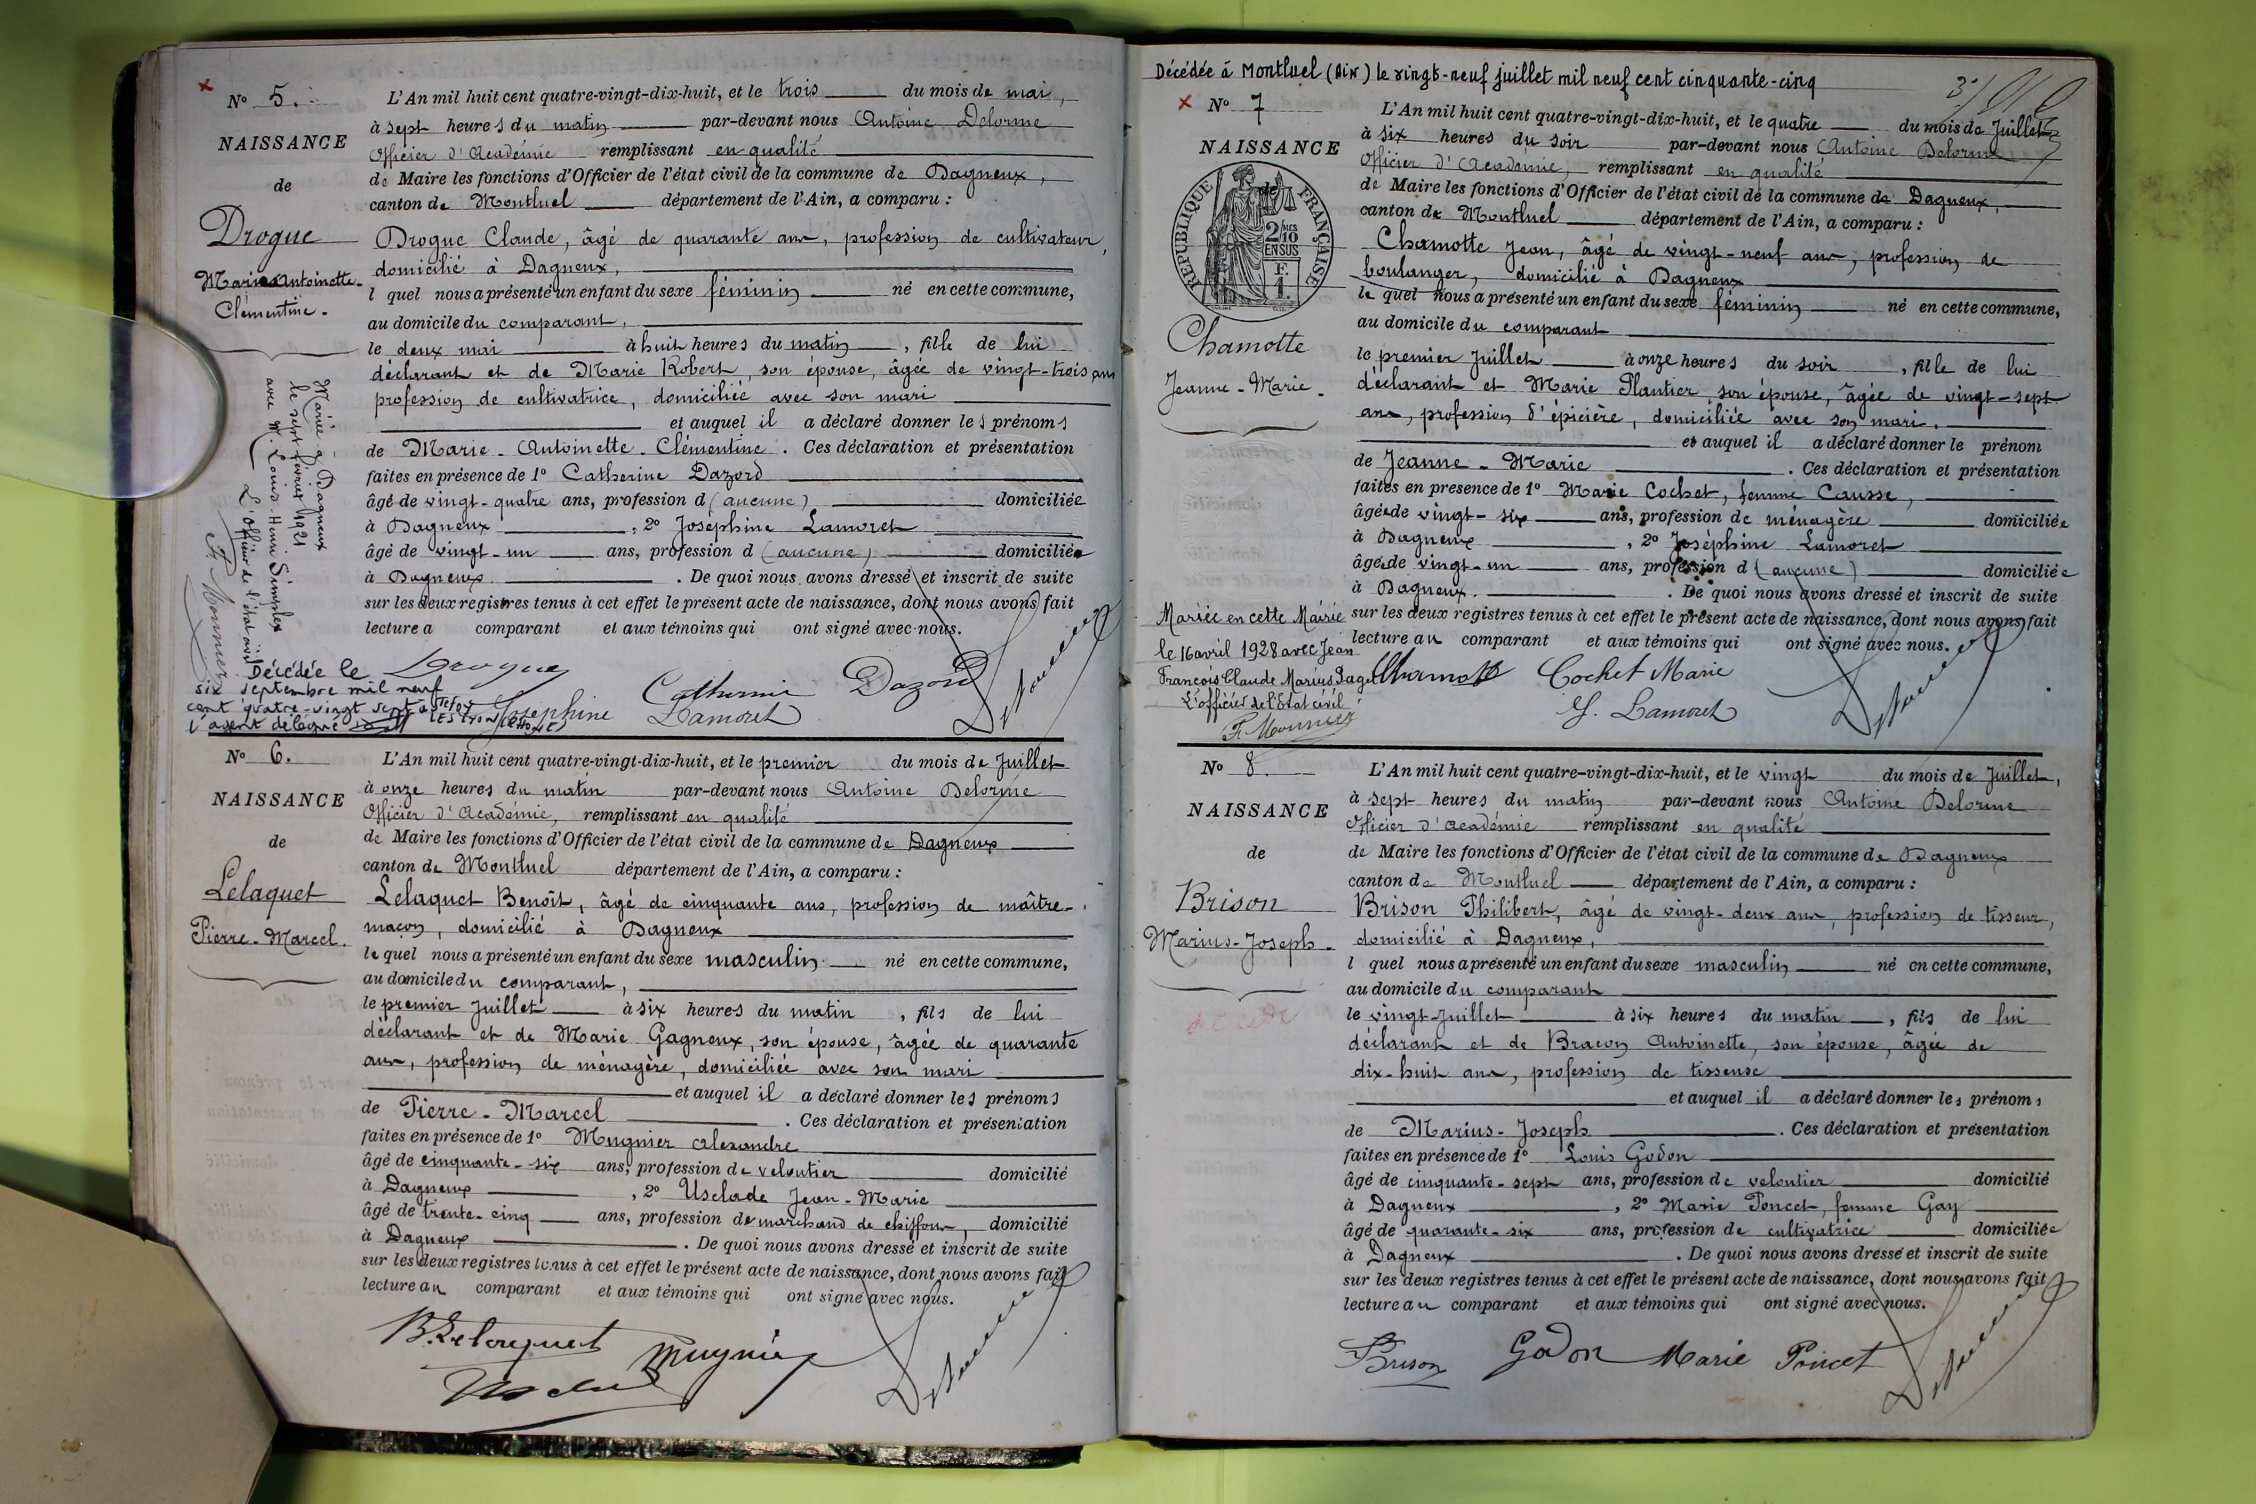 N° 5.
NAISSANCE
de
Drogue
Marie Antoinette-
Clémentine.
Mariée à Dagneux
le sept février 1921
avec M. Louis-Henri Simplex
L'officier de l'état civil
F. Mounier
Décédée le
six septembre mil neuf
cent quatre-vingt sept à
l'agent délégué
L'An mil huit cent quatre-vingt-dix-huit, et le trois du mois de mai,
à sept heures du matin par-devant nous Antoine Delorme
Officier d'Académie remplissant en qualité
de Maire les fonctions d'Officier de l'état civil de la commune de Dagneux,
canton de Montluel département de l'Ain, a comparu :
Drogue Claude, âgé de quarante ans, profession de cultivateur,
domicilié à Dagneux,
l quel nous a présenté un enfant du sexe féminin né en cette commune,
au domicile du comparant,
le deux mai à huit heures du matin, fille de lui
déclarant et de Marie Robert, son épouse, âgée de vingt-trois ans
profession de cultivatrice, domiciliée avec son mari
et auquel il a déclaré donner les prénoms
de Marie-Antoinette-Clémentine. Ces déclaration et présentation
faites en présence de 1° Catherine Dazord
âgé de vingt-quatre ans, profession d (aucune) domiciliée
à Dagneux, 2° Joséphine Lamoret
âgé de vingt-un ans, profession d (aucune) domiciliée
à Dagneux. De quoi nous avons dressé et inscrit de suite
sur les deux registres tenus à cet effet le présent acte de naissance, dont nous avons fait
lecture a comparant et aux témoins qui ont signé avec nous.
Drogue
Catherine Dazord
Josephine Lamoret
Delorme
N° 6.
NAISSANCE
de
Lelaquet
Pierre-Marcel.
L'An mil huit cent quatre-vingt-dix-huit, et le premier du mois de Juillet
à onze heures du matin par-devant nous Antoine Delorme
Officier d'Académie, remplissant en qualité
de Maire les fonctions d'Officier de l'état civil de la commune de Dagneux
canton de Montluel département de l'Ain, a comparu :
Lelaquet Benoît, âgé de cinquante ans, profession de maître-
maçon, domicilié à Dagneux
le quel nous a présenté un enfant du sexe masculin né en cette commune,
au domicile du comparant,
le premier Juillet à six heures du matin, fils de lui
déclarant et de Marie Gagneux, son épouse, âgée de quarante
ans, profession de ménagère, domiciliée avec son mari
et auquel il a déclaré donner les prénoms
de Pierre-Marcel. Ces déclaration et présentation
faites en présence de 1° Mugnier Alexandre
âgé de cinquante-six ans, profession de veloutier domicilié
à Dagneux, 2° Usclade Jean-Marie
âgé de trente-cinq ans, profession de marchand de chiffons, domicilié
à Dagneux. De quoi nous avons dressé et inscrit de suite
sur les deux registres tenus à cet effet le présent acte de naissance, dont nous avons fait
lecture au comparant et aux témoins qui ont signé avec nous.
B. Lelaquet Mugnier
Delorme
Décédée à Montluel (Ain) le vingt-neuf juillet mil neuf cent cinquante-cinq
N° 7
NAISSANCE
de
RÉPUBLIQUE FRANÇAISE
2/10 EN SUS
F. 1
Chamotte
Jeanne-Marie.
Mariée en cette Mairie
le 16 avril 1928 avec Jean
François Claude Marius Page
L'officier de l'état civil
F. Mounier
L'An mil huit cent quatre-vingt-dix-huit, et le quatre du mois de Juillet
à six heures du soir par-devant nous Antoine Delorme
Officier d'Académie, remplissant en qualité
de Maire les fonctions d'Officier de l'état civil de la commune de Dagneux,
canton de Montluel département de l'Ain, a comparu :
Chamotte Jean, âgé de vingt-neuf ans, profession de
boulanger, domicilié à Dagneux
le quel nous a présenté un enfant du sexe féminin né en cette commune,
au domicile du comparant
le premier Juillet à onze heures du soir, fille de lui
déclarant et Marie Plantier, son épouse, âgée de vingt-sept
ans, profession d'épicière, domiciliée avec son mari.
et auquel il a déclaré donner le prénom
de Jeanne-Marie. Ces déclaration et présentation
faites en présence de 1° Marie Cochet, femme Causse,
âgée de vingt-six ans, profession de ménagère domiciliée
à Dagneux, 2° Joséphine Lamoret
âgée de vingt-un ans, profession d (aucune) domiciliée
à Dagneux. De quoi nous avons dressé et inscrit de suite
sur les deux registres tenus à cet effet le présent acte de naissance, dont nous avons fait
lecture au comparant et aux témoins qui ont signé avec nous.
Chamotte Cochet Marie
J. Lamoret
Delorme
N° 8.
NAISSANCE
de
Brison
Marius-Joseph-
L'An mil huit cent quatre-vingt-dix-huit, et le vingt du mois de Juillet,
à sept heures du matin par-devant nous Antoine Delorme
Officier d'Académie remplissant en qualité
de Maire les fonctions d'Officier de l'état civil de la commune de Dagneux
canton de Montluel département de l'Ain, a comparu :
Brison Philibert, âgé de vingt-deux ans, profession de tisseur,
domicilié à Dagneux,
l quel nous a présenté un enfant du sexe masculin né en cette commune,
au domicile du comparant
le vingt Juillet à six heures du matin, fils de lui
déclarant et de Bracon Antoinette, son épouse, âgée de
dix-huit ans, profession de tisseuse
et auquel il a déclaré donner les prénoms
de Marius-Joseph. Ces déclaration et présentation
faites en présence de 1° Louis Godon
âgé de cinquante-sept ans, profession de veloutier domicilié
à Dagneux, 2° Marie Poncet, femme Gay
âgé de quarante-six ans, profession de cultivatrice domiciliée
à Dagneux. De quoi nous avons dressé et inscrit de suite
sur les deux registres tenus à cet effet le présent acte de naissance, dont nous avons fait
lecture au comparant et aux témoins qui ont signé avec nous.
Brison Godon Marie Poncet
Delorme